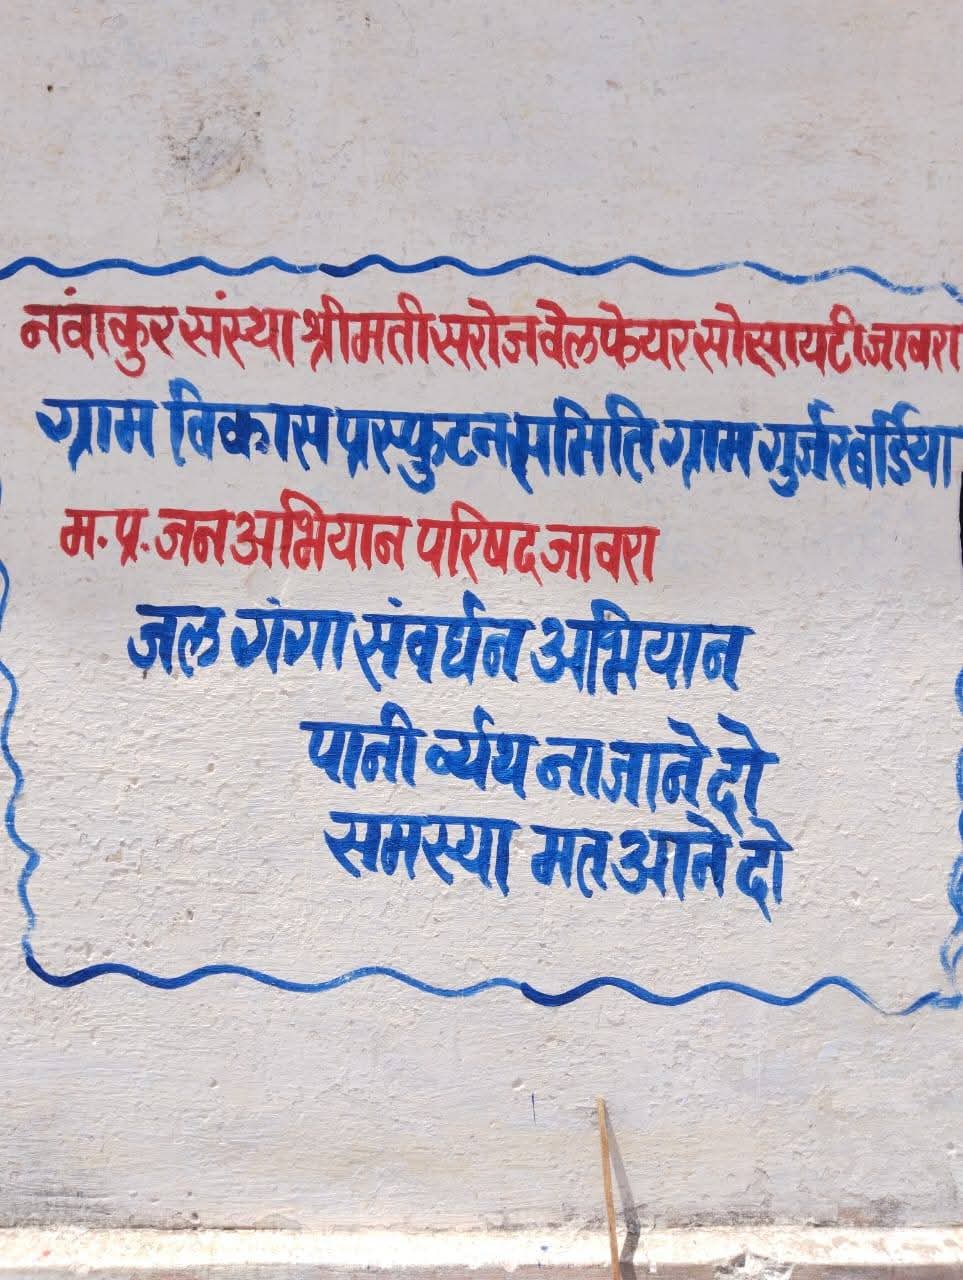 नंवाकुर संस्था श्रीमती सरोज वेलफेयर सोसायटी जावरा
ग्राम विकास प्रस्फुटन समिति ग्राम गुर्जर बर्डिया
म. प्र. जन अभियान परिषद जावरा
जल गंगा संवर्धन अभियान
पानी र्व्यथ ना जाने दो
समस्या मत आने दो